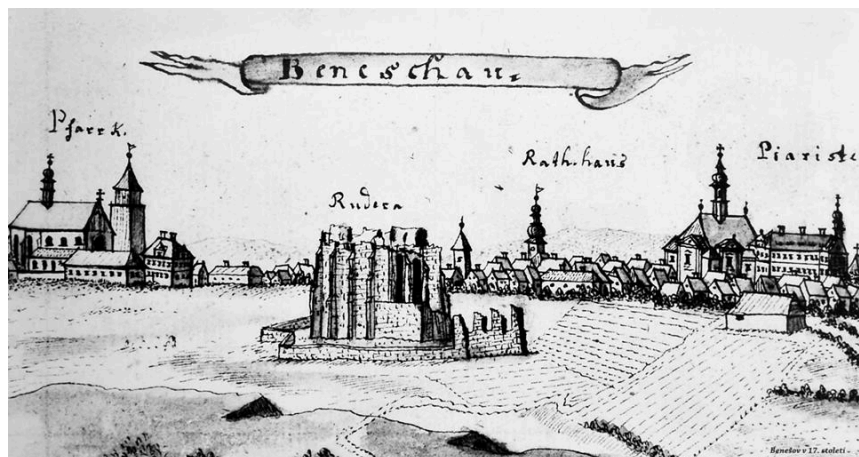 Beneschau.
Pfarr K.
Rudera
Rath.haus
Piariste
Benešov v 17. století -